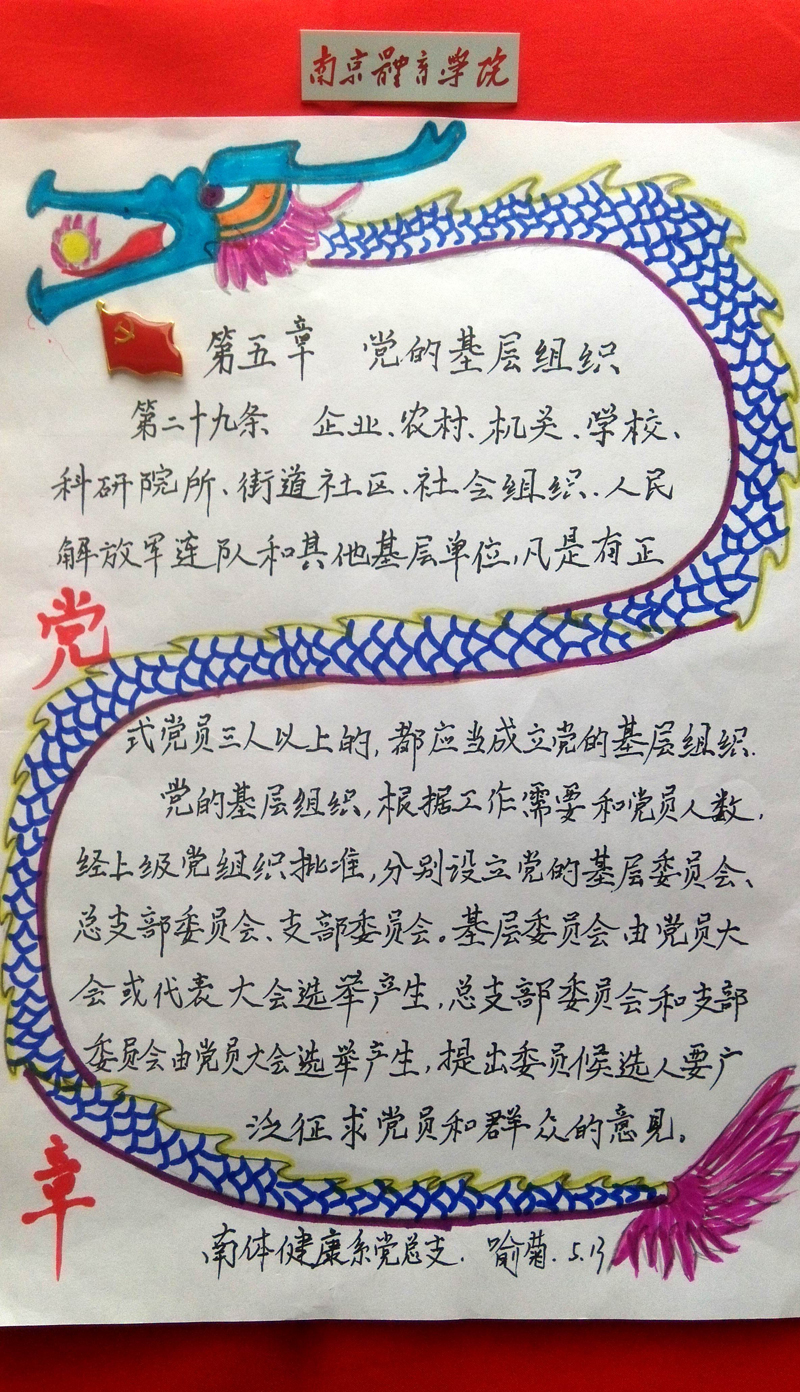 南京體育學院
第五章 党的基层组织
第二十九条 企业、农村、机关、学校、
科研院所、街道社区、社会组织、人民
解放军连队和其他基层单位,凡是有正
党
式党员三人以上的,都应当成立党的基层组织.
党的基层组织,根据工作需要和党员人数,
经上级党组织批准,分别设立党的基层委员会、
总支部委员会、支部委员会。基层委员会由党员大
会或代表大会选举产生,总支部委员会和支部
委员会由党员大会选举产生,提出委员候选人要广
泛征求党员和群众的意见。
章
南体健康系党总支. 喻菊. 5.13